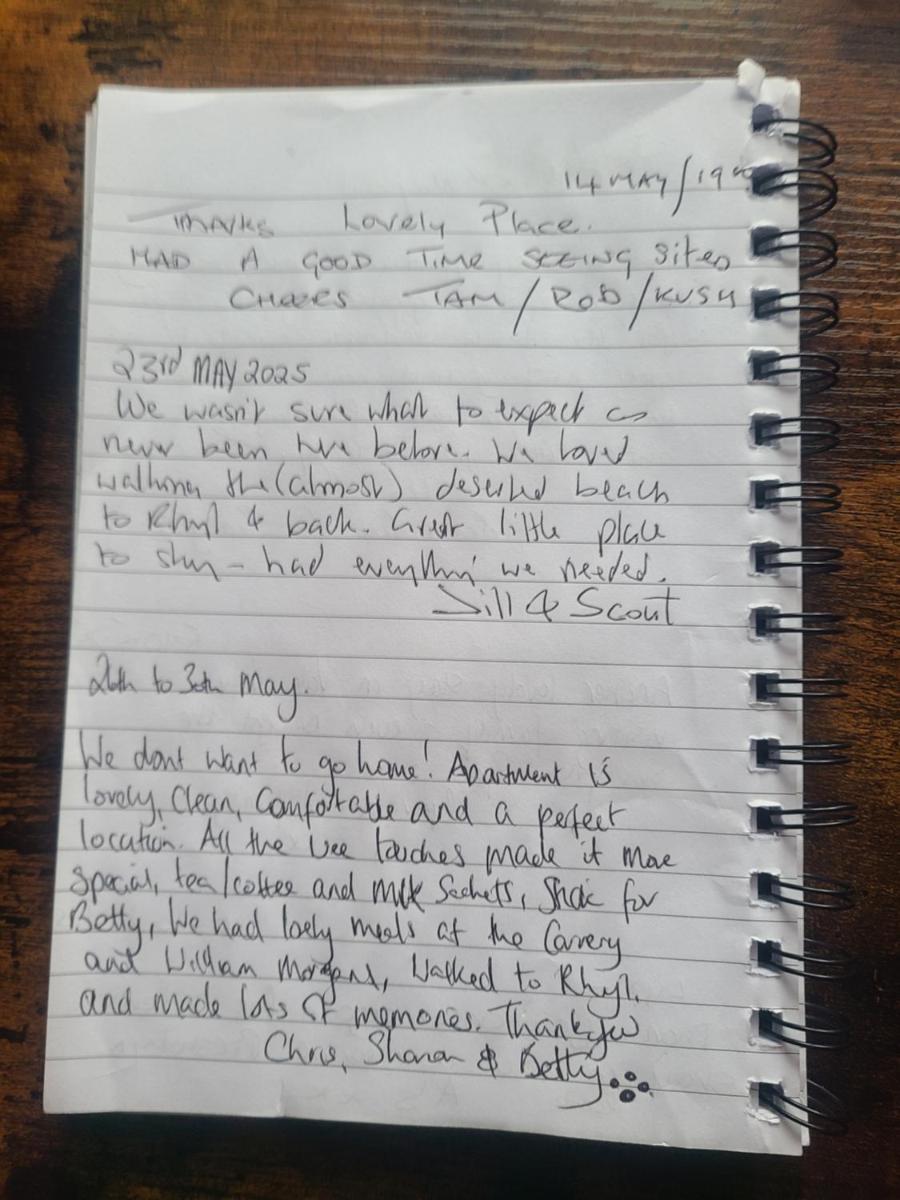 14 MAY/19
THANKS Lovely Place.
HAD A GOOD TIME SEEING SITES
CHEERS TAM/ROB/KUSH
23rd MAY 2025
We wasn't sure what to expect as
never been here before. We loved
walking the (almost) deserted beach
to Rhyl & back. Great little place
to stay - had everythin' we needed.
Jill & Scout
26th to 30th May.
We dont want to go home! Apartment is
lovely, Clean, Comfortable and a perfect
location. All the wee touches made it more
special, tea/coffee and milk Sachets, for
Betty, We had lovely meals at the Carvery
and William Morgans, Walked to Rhyl,
and made lots of memories. Thankyou
Chris, Sharon & Betty